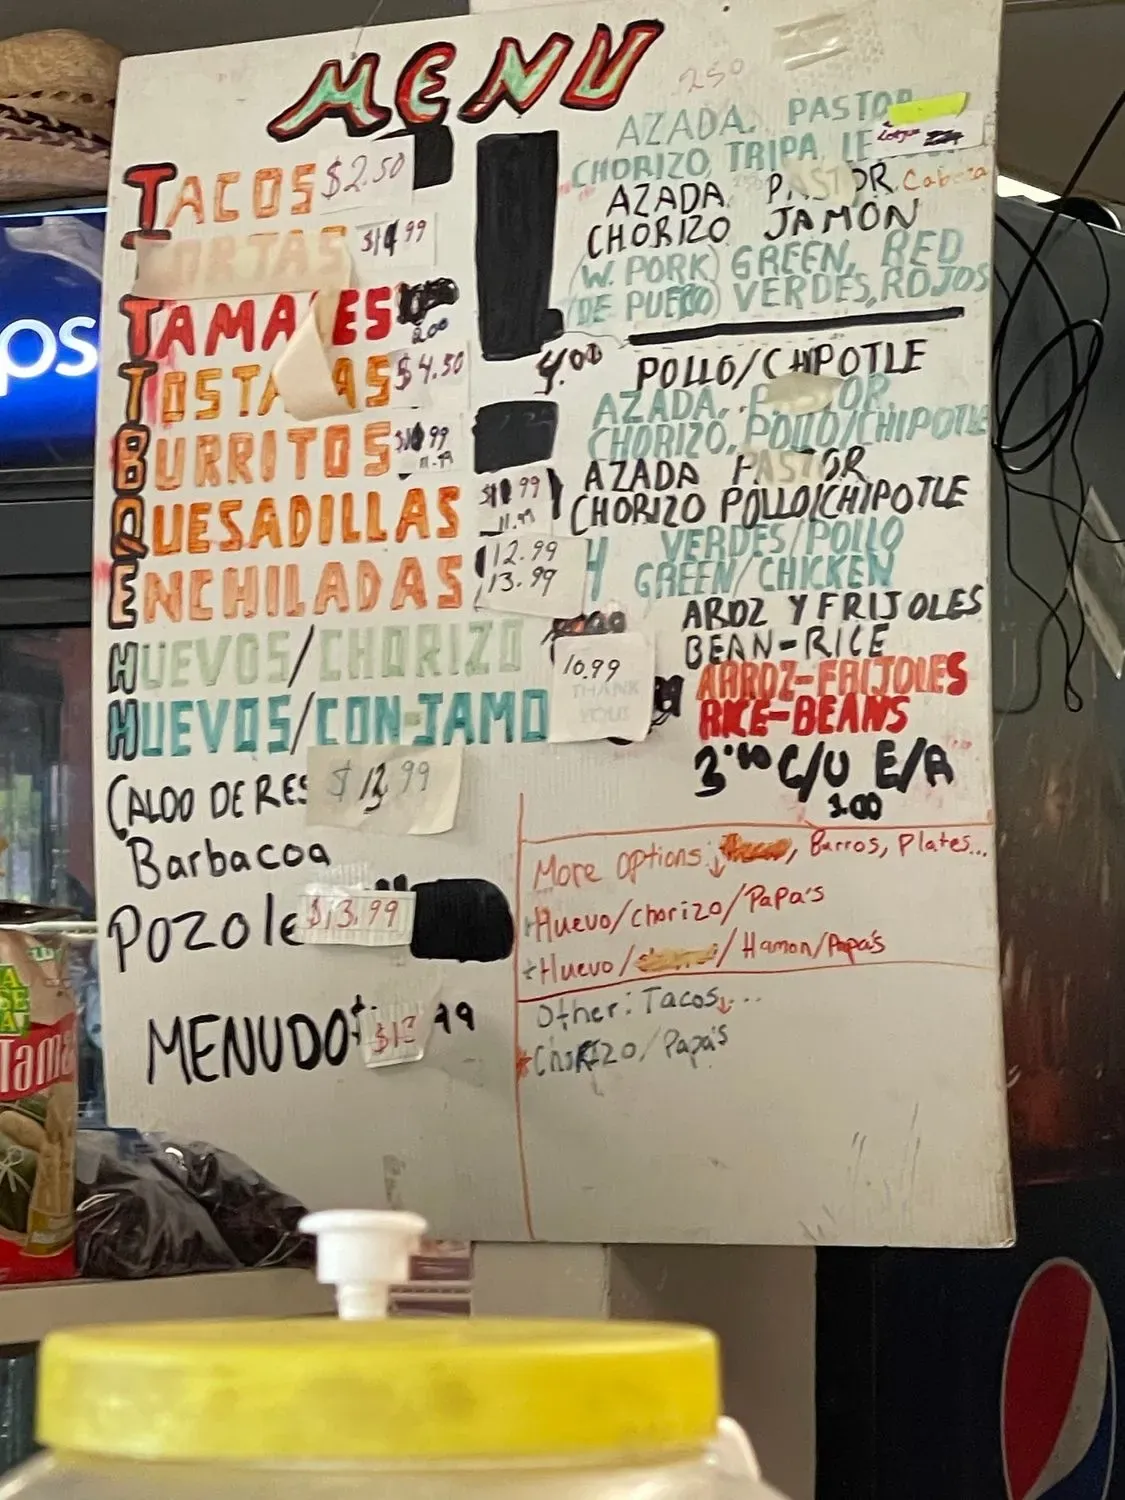 MENU
250
TACOS $2.50
AZADA. PASTOR
CHORIZO, TRIPA, LE
Lengua
TORTAS
AZADA PASTOR. Cabeza
CHORIZO JAMON
TAMALES 2.00
(W. PORK) GREEN, RED
(DE PUERCO) VERDES, ROJOS
TOSTADAS $4.50
4.00 POLLO/CHIPOTLE
BURRITOS 11.99
AZADA, PASTOR
CHORIZO, POLLO/CHIPOTLE
QUESADILLAS 11.99
AZADA PASTOR
CHORIZO POLLO/CHIPOTLE
ENCHILADAS 12.99
13.99
4 VERDES/POLLO
GREEN/CHICKEN
HUEVOS/CHORIZO
10.99
THANK
YOU!
AROZ Y FRIJOLES
BEAN-RICE
HUEVOS/CON-JAMO
ARROZ-FRIJOLES
RICE-BEANS
CALDO DE RES $13.99
3.00 C/U E/A
3.00
Barbacoa
Pozole $13.99
MENUDO
More options: , Burros, Plates...
Huevo/chorizo/Papa's
Huevo/ /Hamon/Papa's
Other: Tacos...
Chorizo/Papa's
ps
Tama